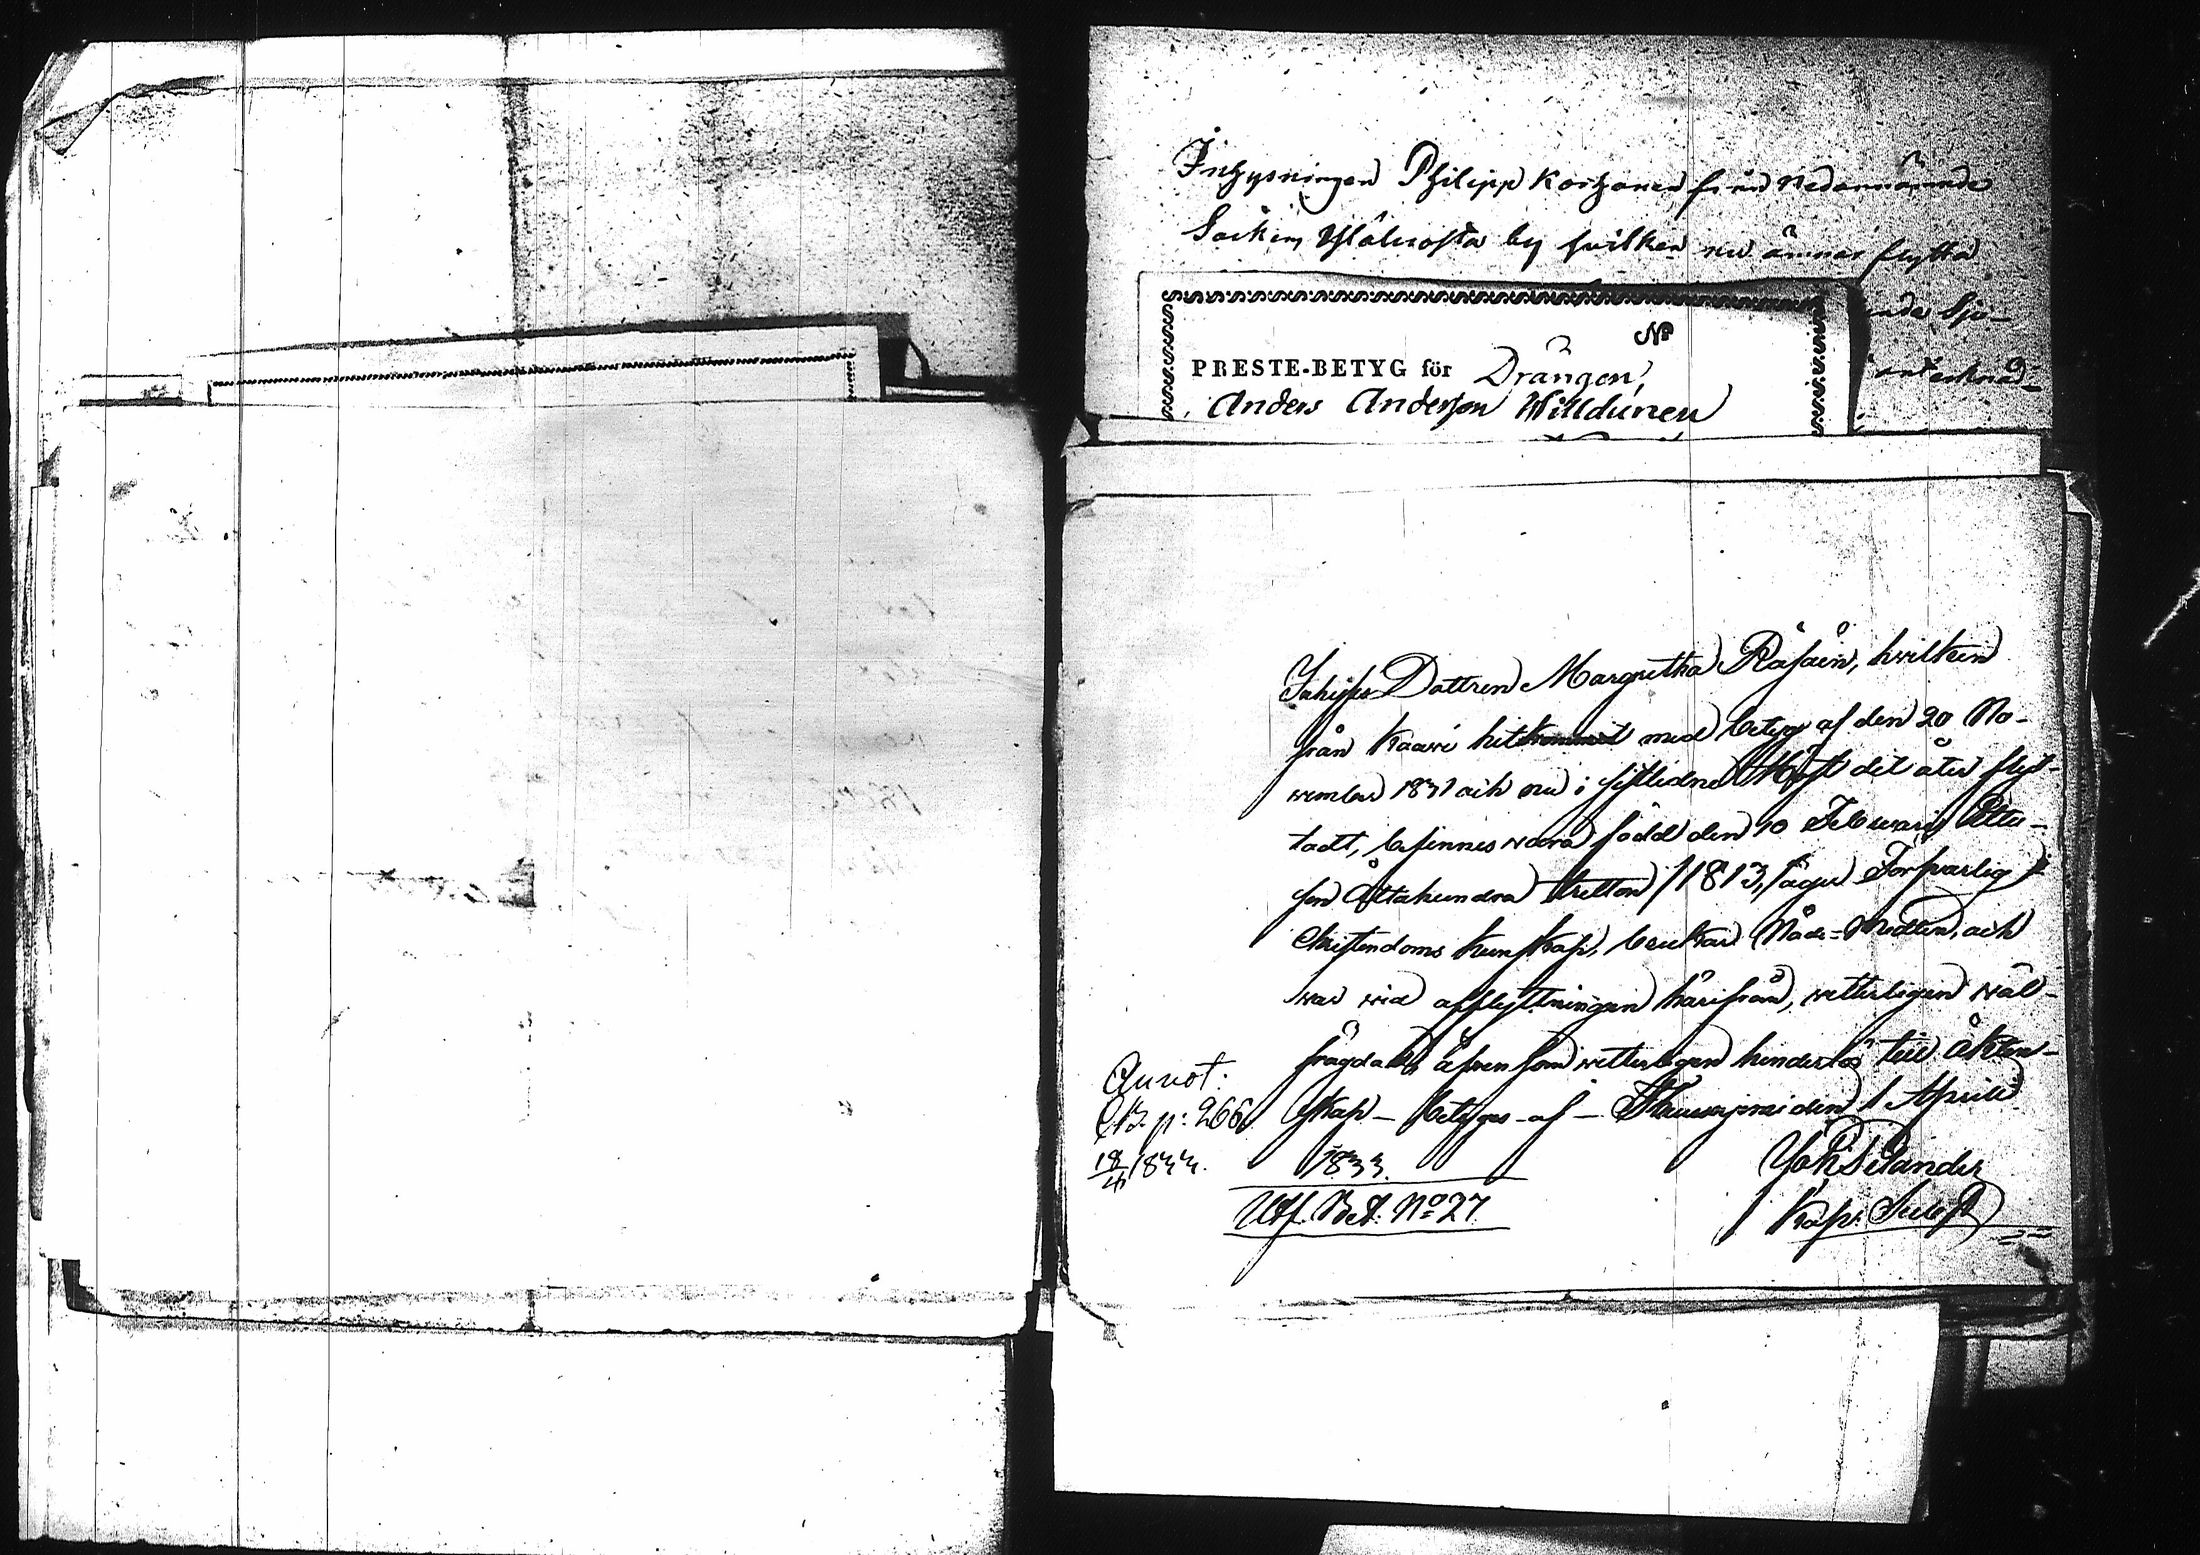 Inhysningen Philipp Korhonen från nedannämnde
Sockens by hvilken nu ämnar flytta
No
PRESTE-BETYG för Drängen,
Anders Andersson Willdunen
Inhyses Dottren Margretha Räsäin, hvilken
från Kaawi hitkommit med betyg af den 20 No-
vember 1831 och nu i sistledne Höst dit åter flyt-
tadt, befinnes vara född den 10 Februarij Ader-
ton Åttahundra tretton /1813,/ äger Försvarlig
Christendoms kunskap, brukar Nåde-Medlen, och
war wid afflyttningen härifrån, vetterligen wäl-
frägdad, äfven som vetterligen hinderlös till äkten-
skap – betyges af – den 1 April
1833.
Utf. Bet. No 27.
Joh. Selander
Kap. Subst
Annot:
C.B. p: 266
18/4 1833.